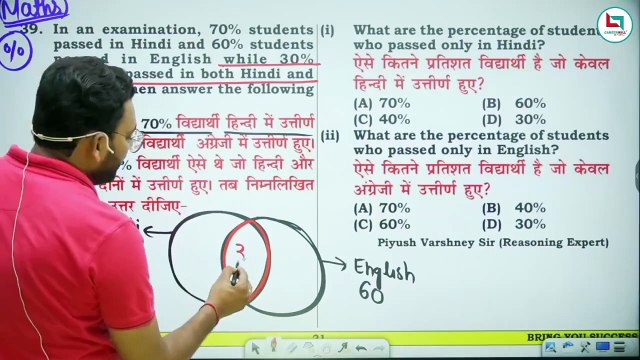 Maths
%
39. In an examination, 70% students
passed in Hindi and 60% students
in English while 30%
passed in both Hindi and
then answer the following
70% विद्यार्थी हिन्दी में उत्तीर्ण
विद्यार्थी अंग्रेजी में उत्तीर्ण हुए।
% विद्यार्थी ऐसे थे जो हिन्दी और
में उत्तीर्ण हुए। तब निम्नलिखित
उत्तर दीजिए-
3
English
60
(i) What are the percentage of students
who passed only in Hindi?
ऐसे कितने प्रतिशत विद्यार्थी है जो केवल
हिन्दी में उत्तीर्ण हुए?
(A) 70% (B) 60%
(C) 40% (D) 30%
(ii) What are the percentage of students
who passed only in English?
ऐसे कितने प्रतिशत विद्यार्थी है जो केवल
अंग्रेजी में उत्तीर्ण हुए?
(A) 70% (B) 40%
(C) 60% (D) 30%
Piyush Varshney Sir (Reasoning Expert)
21
BRING YOU SUCCESS